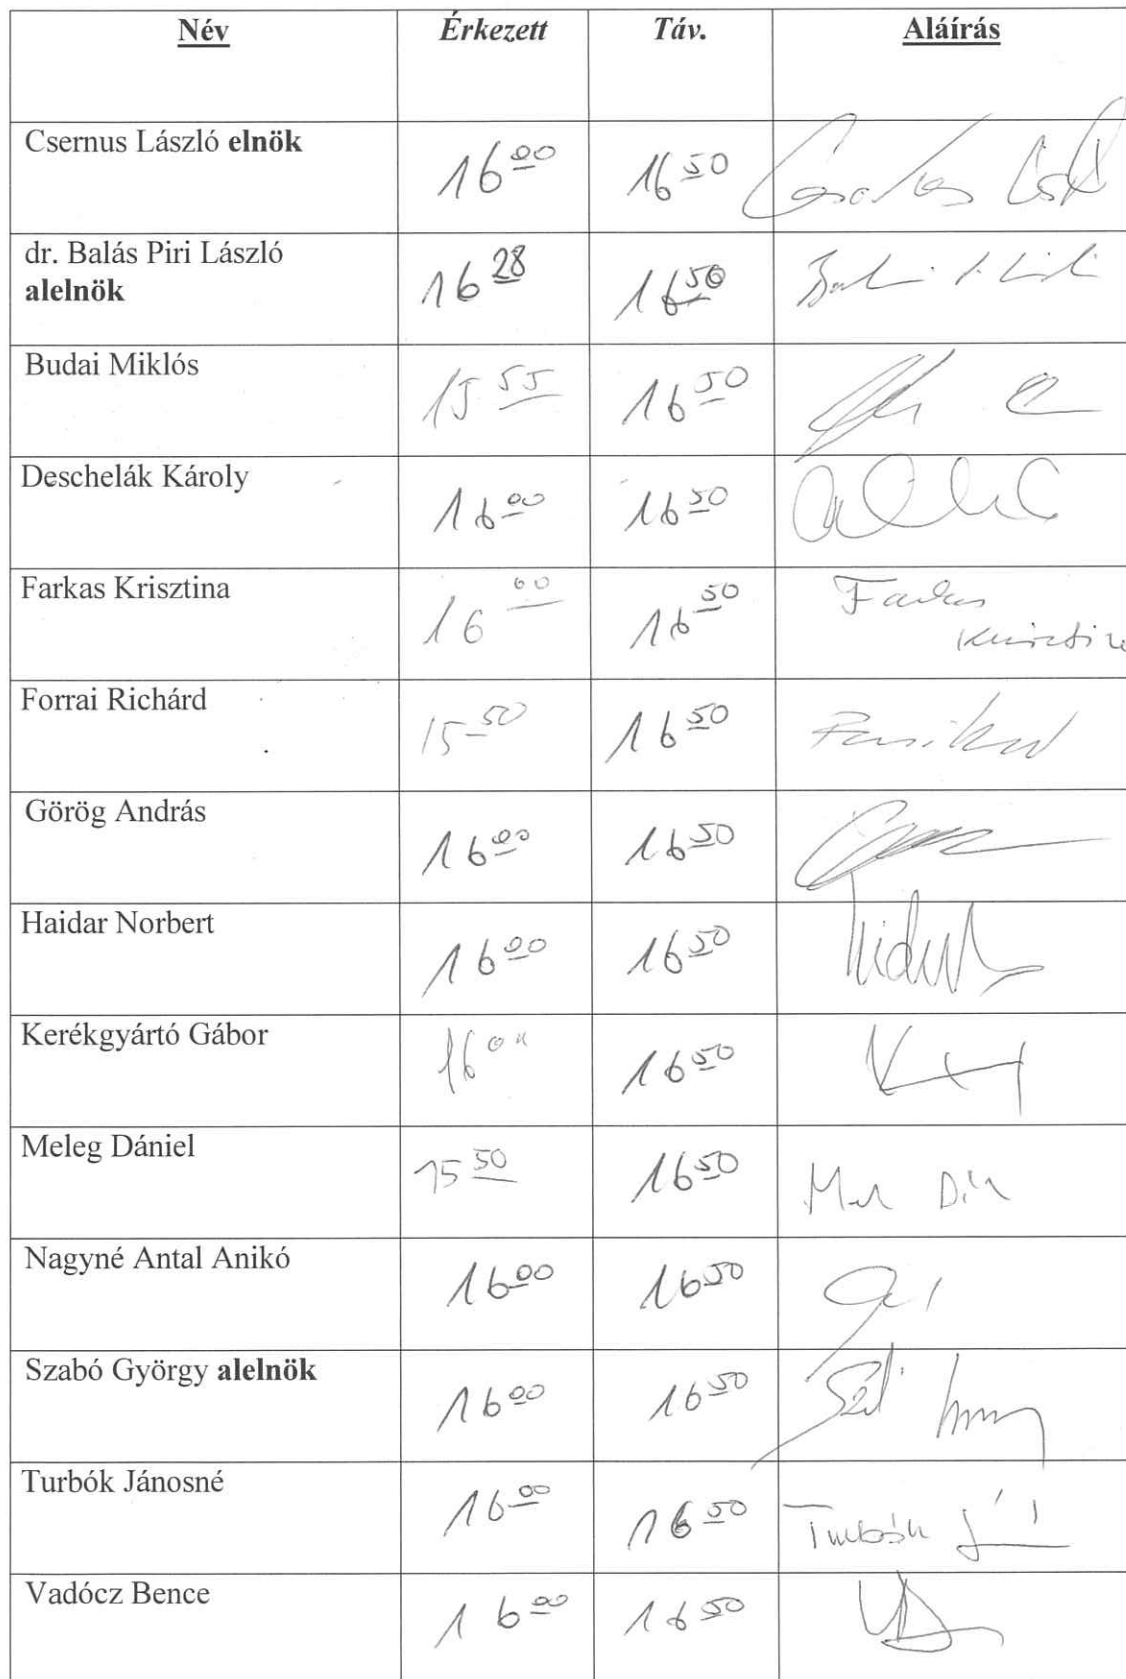 Név Érkezett Táv. Aláírás
Csernus László elnök 16 00 16 50
dr. Balás Piri László
alelnök 16 28 16 50
Budai Miklós 15 55 16 50
Deschelák Károly 16 00 16 50
Farkas Krisztina 16 00 16 50 Farkas
Krisztina
Forrai Richárd 15 50 16 50
Görög András 16 00 16 50
Haidar Norbert 16 00 16 50
Kerékgyártó Gábor 16 00 16 50
Meleg Dániel 15 50 16 50
Nagyné Antal Anikó 16 00 16 50
Szabó György alelnök 16 00 16 50
Turbók Jánosné 16 00 16 50 Turbók
Vadócz Bence 16 00 16 50